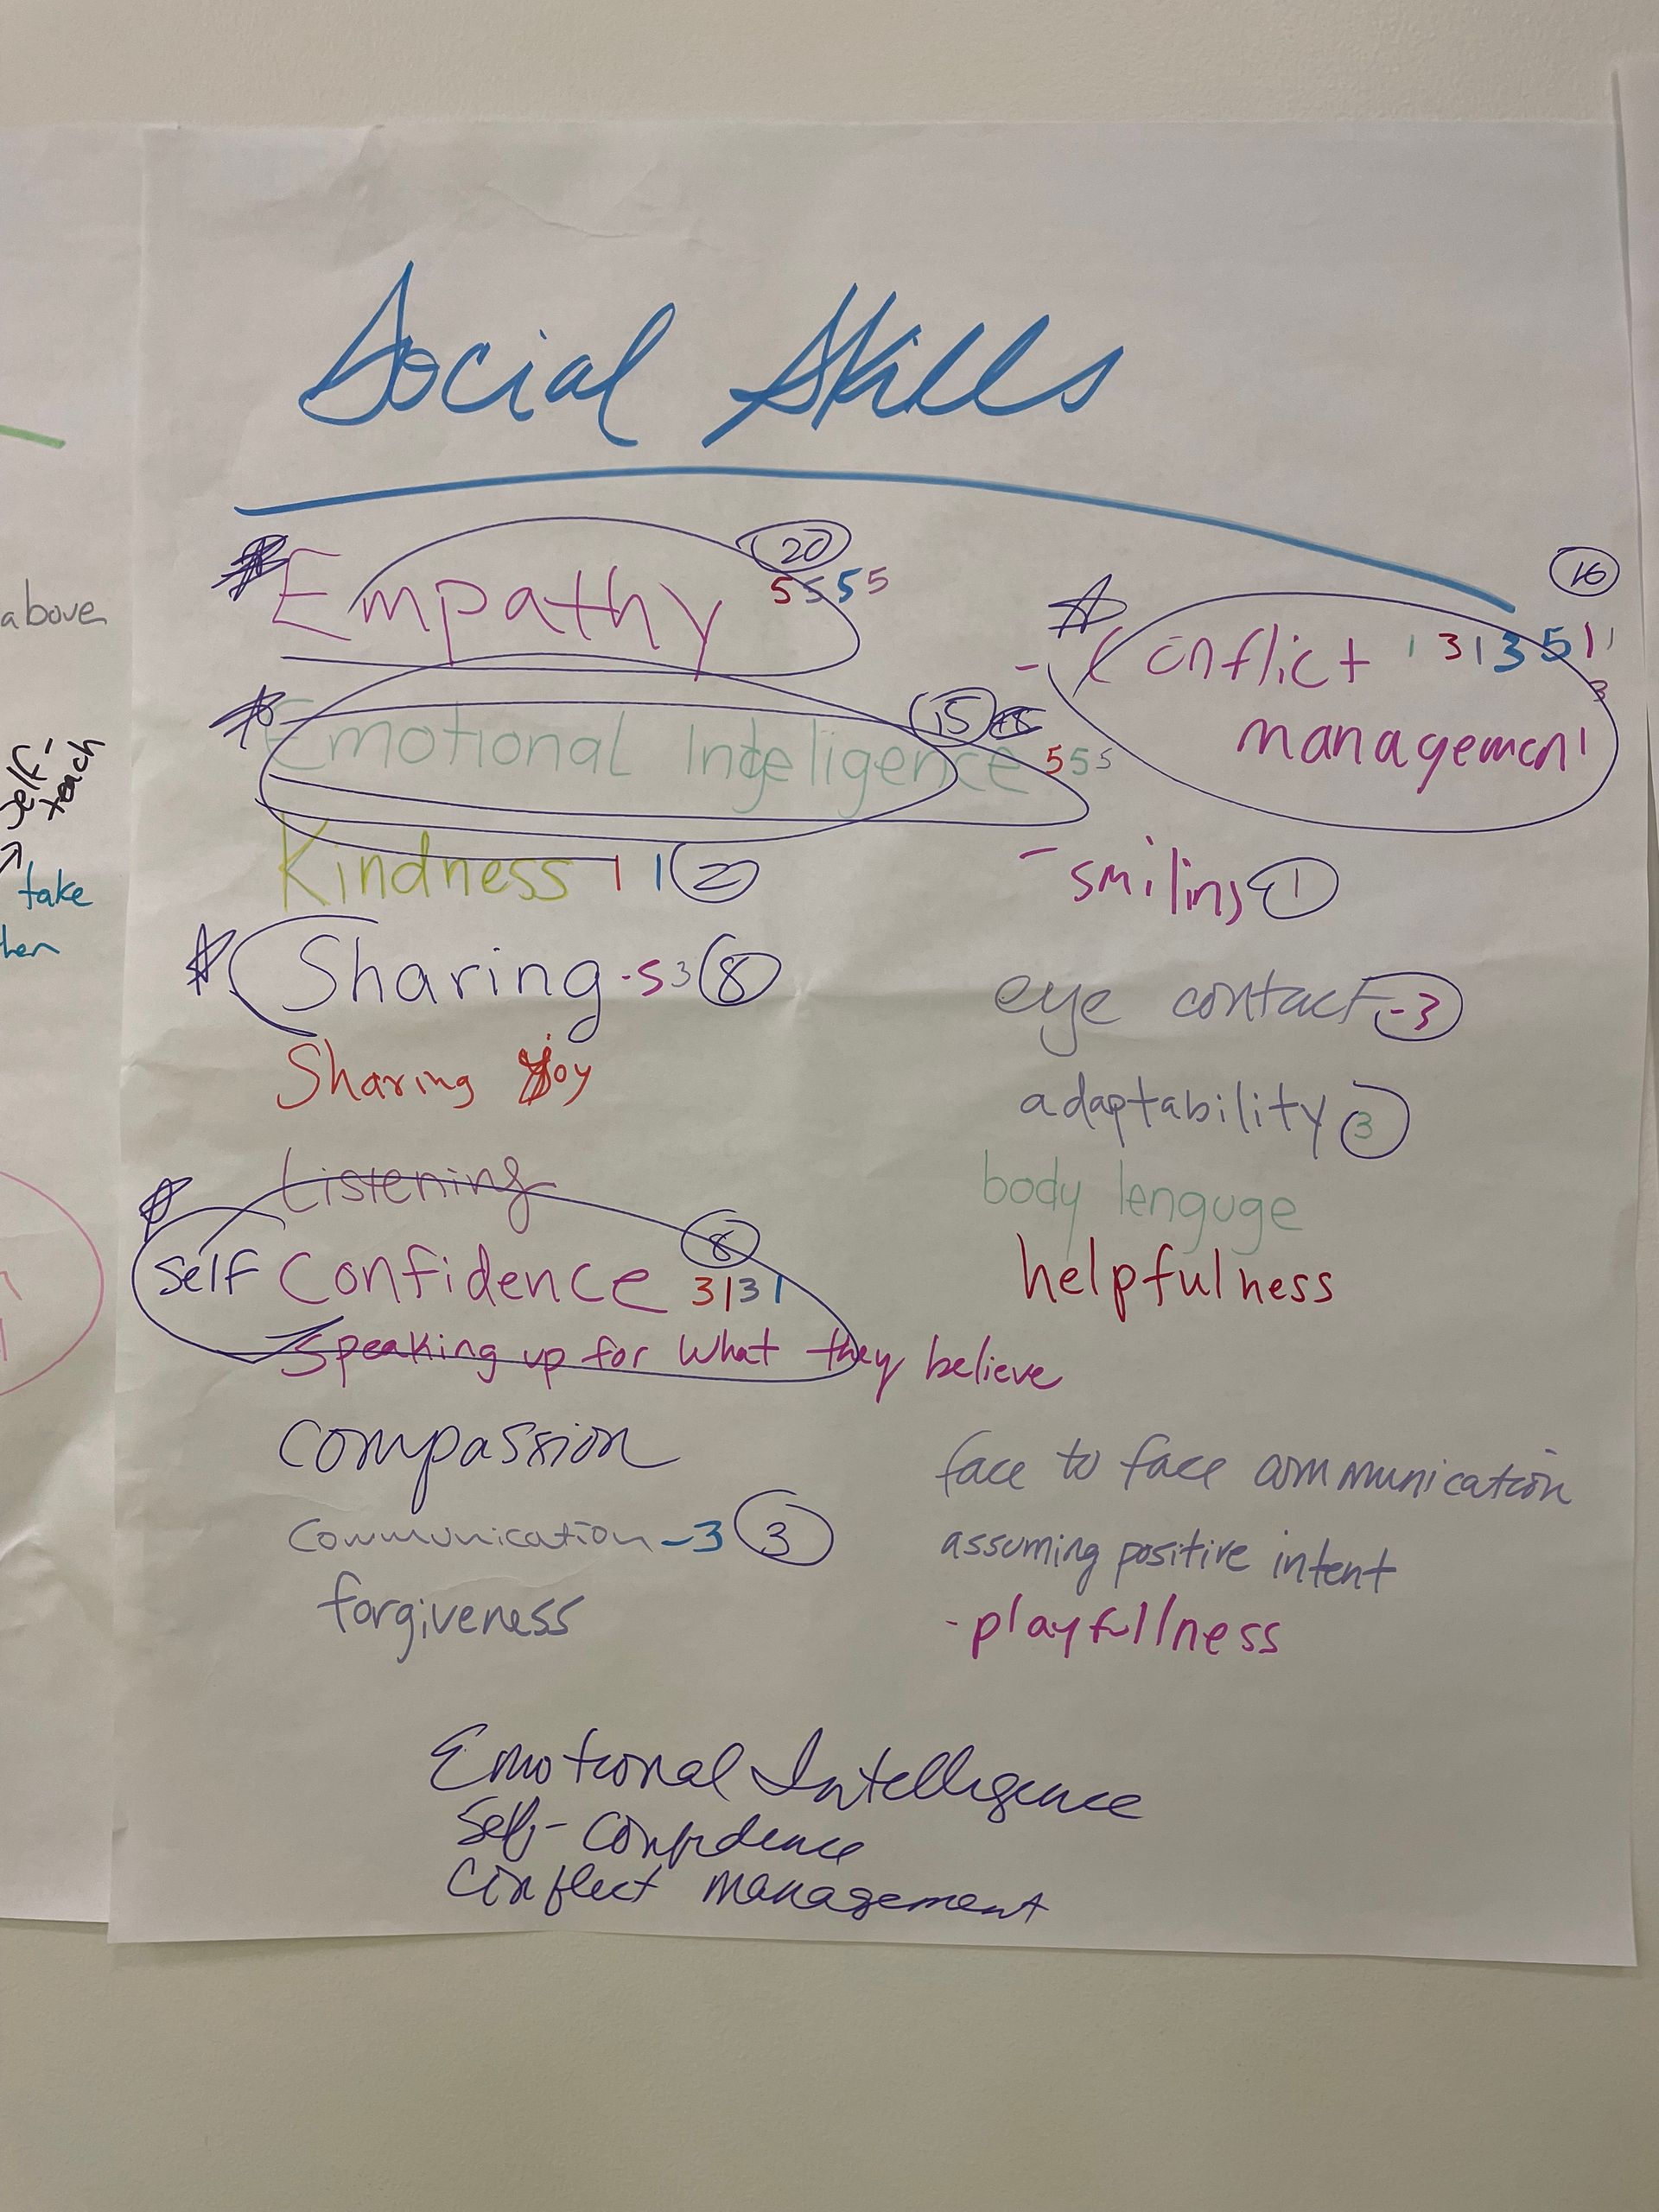 Social Skills
Empathy 5 5 5 5 20
Emotional Intelligence 5 5 5 15
Kindness 1 1 2
Sharing - 5 3 8
Sharing Joy
Listening
Self Confidence 3 1 3 1 8
Speaking up for what they believe
Compassion
Communication - 3 3
forgiveness
- Conflict 1 3 1 3 5 1 1 3 16
management
- smiling 1
eye contact - 3
adaptability 3
body lenguge
helpfulness
face to face communication
assuming positive intent
- playfullness
Emotional Intelligence
Self-Confidence
Conflict management
above
self-
teach
take